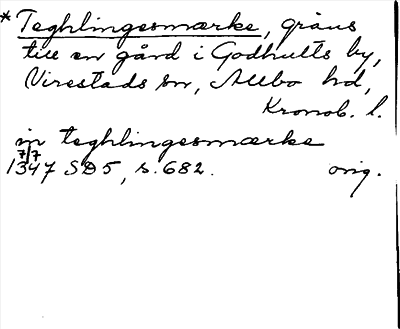 * Teghlingesmærke, gräns
till en gård i Godhults by,
Virestads sn, Allbo hd,
Kronob. l.
in teghlingesmærke
7/7
1347 SD 5, s. 682. orig.